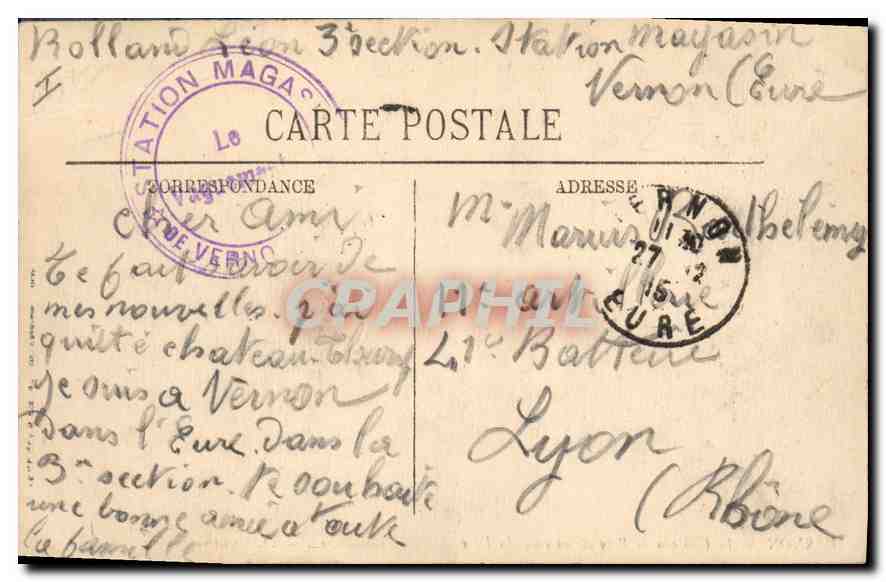 Rolland Léon 3e section. Station Magasin
Vernon (Eure
I
STATION MAGAS
Le
Vaguemes
DE VERNO
CARTE POSTALE
CORRESPONDANCE
ADRESSE
VERNON
11 30
27 12
15
EURE
cher Ami
Te fait savoir de
mes nouvelles. j'ai
quitté chateau-Thierry
Je suis a Vernon
Dans l'Eure. Dans la
3e section. Te souhaite
une bonne année a toute
la famille
Mr
Marius Barthélemy
artillerie
41e Batterie
Lyon
(Rhône
CPARAMA